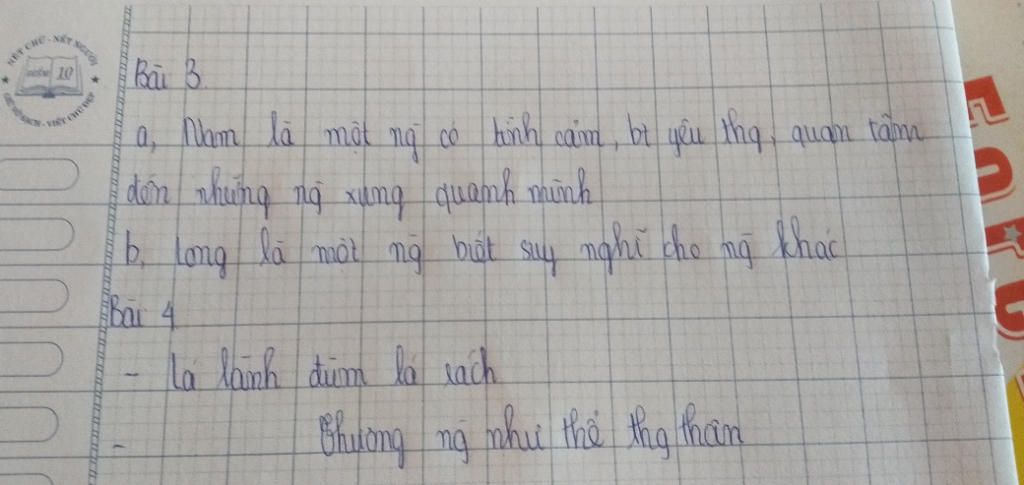 NÉT CHỮ - NẾT NGƯỜI
10
Bài 3
a, Nam là một ng có tình cảm, bt yêu thg, quan tâm
đến những ng xung quanh mình
b, Long là một ng biết suy nghĩ cho ng khác
Bài 4
- Lá lành đùm lá rách
- Thương ng như thể thg thân